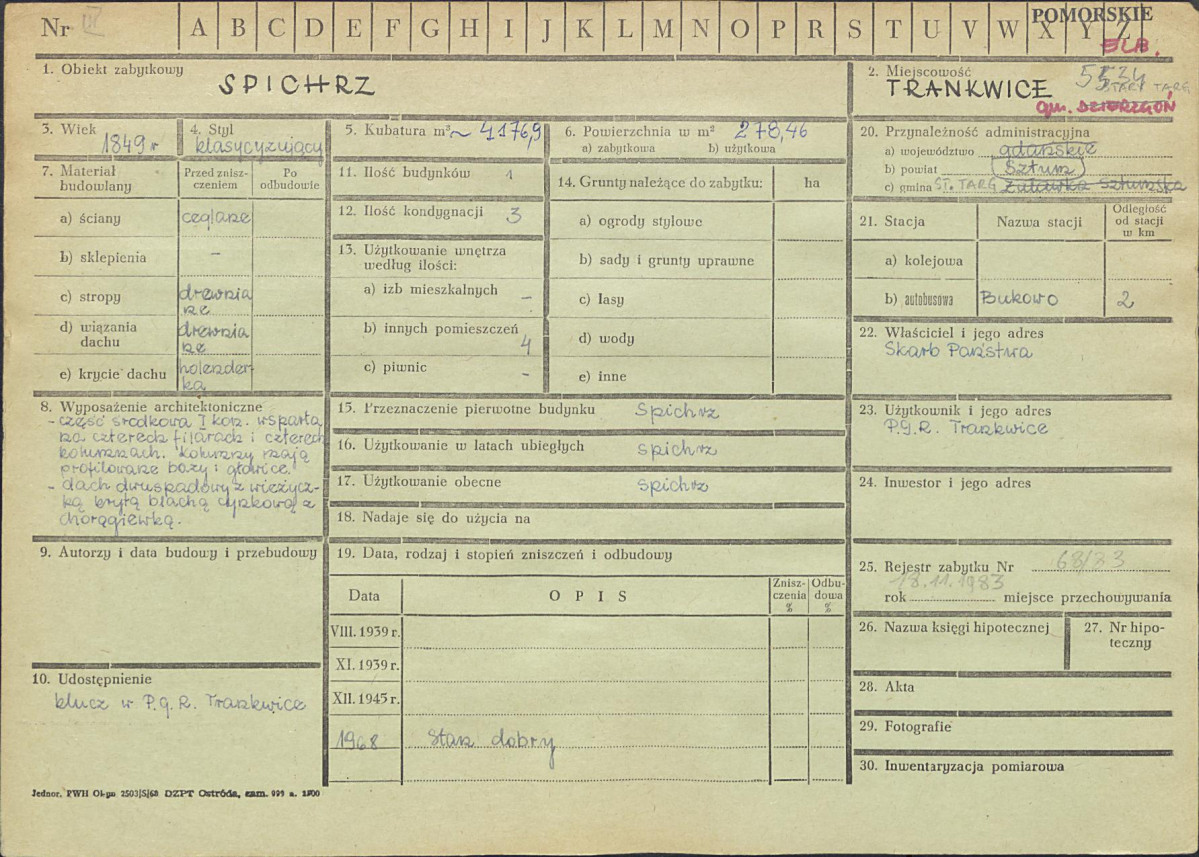 Nr III A B C D E F G H I J K L M N O P R S T U V W X Y Z
POMORSKIE
ELB.
1. Obiekt zabytkowy
SPICHRZ
2. Miejscowość
TRANKWICE
STARY TARG
gm. DZIERZGOŃ
3. Wiek
1849 r
4. Styl
klasycyzujący
5. Kubatura m³ ~ 4176,9
6. Powierzchnia w m² 278,46
a) zabytkowa b) użytkowa
7. Materiał budowlany
Przed zniszczeniem
Po odbudowie
a) ściany ceglane
b) sklepienia –
c) stropy drewniane
d) wiązania dachu drewniane
e) krycie dachu holenderka
8. Wyposażenie architektoniczne
- część środkowa I kon. wsparta
na czterech filarach i czterech
kolumnach. Kolumny mają
profilowane bazy i głowice.
- dach dwuspadowy z wieżycz-
ką krytą blachą cynkową z
chorągiewką.
9. Autorzy i data budowy i przebudowy
10. Udostępnienie
klucz w P.G.R. Trankwice
11. Ilość budynków 1
12. Ilość kondygnacji 3
13. Użytkowanie wnętrza
według ilości:
a) izb mieszkalnych –
b) innych pomieszczeń 4
c) piwnic –
14. Grunty należące do zabytku: ha
a) ogrody stylowe
b) sady i grunty uprawne
c) lasy
d) wody
e) inne
15. Przeznaczenie pierwotne budynku spichrz
16. Użytkowanie w latach ubiegłych spichrz
17. Użytkowanie obecne spichrz
18. Nadaje się do użycia na
19. Data, rodzaj i stopień zniszczeń i odbudowy
Data OPIS Znisz-czenia % Odbu-dowa %
VIII. 1939 r.
XI. 1939 r.
XII. 1945 r.
1968 stan dobry
20. Przynależność administracyjna
a) województwo gdańskie
b) powiat Sztum
c) gmina ST. TARG Żuławka Sztumska
21. Stacja Nazwa stacji Odległość od stacji w km
a) kolejowa
b) autobusowa Bukowo 2
22. Właściciel i jego adres
Skarb Państwa
23. Użytkownik i jego adres
P.G.R. Trankwice
24. Inwestor i jego adres
25. Rejestr zabytku Nr 68/83
18.11.1983
rok miejsce przechowywania
26. Nazwa księgi hipotecznej
27. Nr hipo-
teczny
28. Akta
29. Fotografie
30. Inwentaryzacja pomiarowa
Jednor. PWH Ol-yn 2503/S/68 DZPT Ostróda, zam. 999 n.